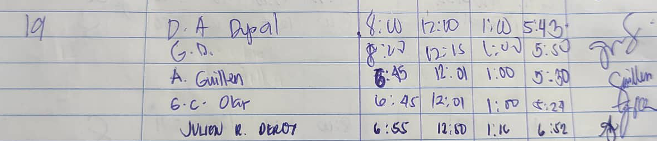 19 D. A Dypal 8:00 12:00 1:00 5:43
G.D. 8:00 12:15 1:00 5:50
A. Guillen 6:45 12:01 1:00 5:30 Guillen
G.C. 6:45 12:01 1:00 5:27
JULIEN R. 6:55 12:50 1:16 6:52